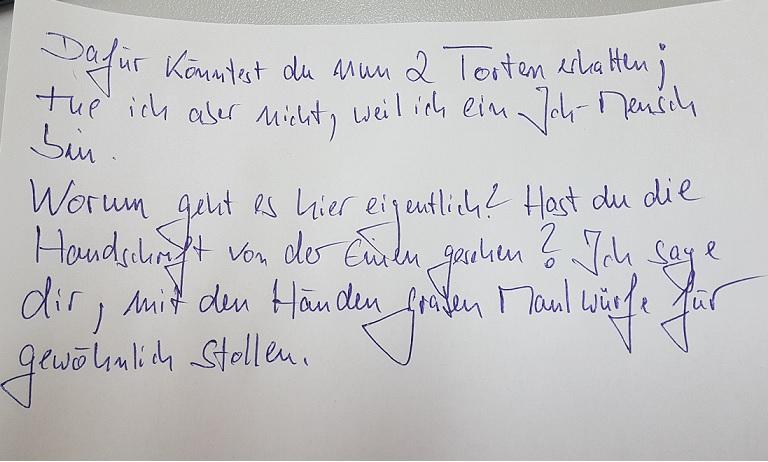 Dafür könntest du nun 2 Torten erhalten;
tue ich aber nicht, weil ich ein Ich-Mensch
bin.
Worum geht es hier eigentlich? Hast du die
Handschrift von der Einen gesehen? Ich sage
dir, mit den Händen graben Maulwürfe für
gewöhnlich Stollen.